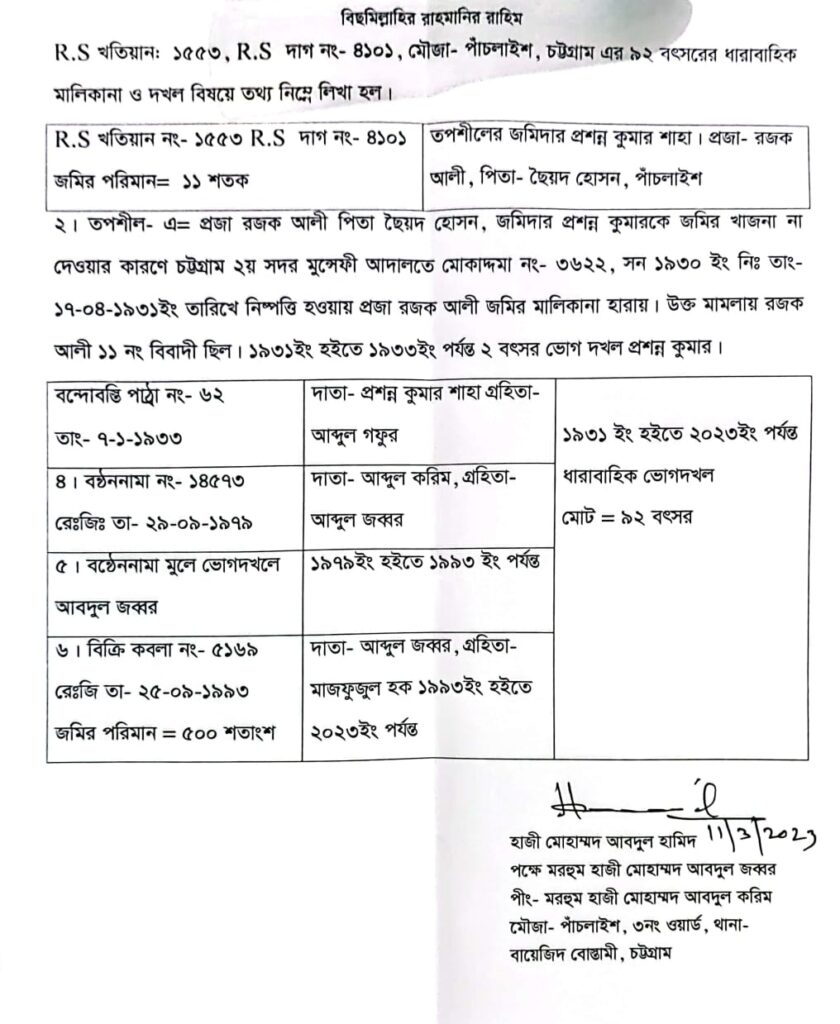 বিছমিল্লাহির রাহমানির রাহিম
R.S খতিয়ান: ১৫৫৩, R.S দাগ নং- ৪১০১, মৌজা- পাঁচলাইশ, চট্টগ্রাম এর ৯২ বৎসরের ধারাবাহিক
মালিকানা ও দখল বিষয়ে তথ্য নিম্নে লিখা হল।
R.S খতিয়ান নং- ১৫৫৩ R.S দাগ নং- ৪১০১
জমির পরিমান= ১১ শতক
তপশীলের জমিদার প্রশন্ন কুমার শাহা। প্রজা- রজক
আলী, পিতা- ছৈয়দ হোসন, পাঁচলাইশ
২। তপশীল- এ= প্রজা রজক আলী পিতা ছৈয়দ হোসন, জমিদার প্রশন্ন কুমারকে জমির খাজনা না
দেওয়ার কারণে চট্টগ্রাম ২য় সদর মুন্সেফী আদালতে মোকাদ্দমা নং- ৩৬২২, সন ১৯৩০ ইং নিঃ তাং-
১৭-০৪-১৯৩১ইং তারিখে নিষ্পত্তি হওয়ায় প্রজা রজক আলী জমির মালিকানা হারায়। উক্ত মামলায় রজক
আলী ১১ নং বিবাদী ছিল। ১৯৩১ইং হইতে ১৯৩৩ইং পর্যন্ত ২ বৎসর ভোগ দখল প্রশন্ন কুমার।
বন্দোবস্তি পাট্টা নং- ৬২
তাং- ৭-১-১৯৩৩
দাতা- প্রশন্ন কুমার শাহা গ্রহিতা-
আব্দুল গফুর
১৯৩১ ইং হইতে ২০২৩ইং পর্যন্ত
ধারাবাহিক ভোগদখল
মোট = ৯২ বৎসর
৪। বণ্ঠননামা নং- ১৪৫৭৩
রেঃজিঃ তা- ২৯-০৯-১৯৭৯
দাতা- আব্দুল করিম, গ্রহিতা-
আব্দুল জব্বর
৫। বণ্ঠেননামা মুলে ভোগদখলে
আবদুল জব্বর
১৯৭৯ইং হইতে ১৯৯৩ ইং পর্যন্ত
৬। বিক্রি কবলা নং- ৫১৬৯
রেঃজি তা- ২৫-০৯-১৯৯৩
জমির পরিমান = ৫০০ শতাংশ
দাতা- আব্দুল জব্বর, গ্রহিতা-
মাজফুজুল হক ১৯৯৩ইং হইতে
২০২৩ইং পর্যন্ত
11/3/2023
হাজী মোহাম্মদ আবদুল হামিদ
পক্ষে মরহুম হাজী মোহাম্মদ আবদুল জব্বর
পীং- মরহুম হাজী মোহাম্মদ আবদুল করিম
মৌজা- পাঁচলাইশ, ৩নং ওয়ার্ড, থানা-
বায়েজিদ বোস্তামী, চট্টগ্রাম